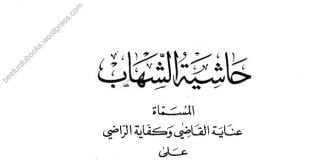 حاشية الشهاب
المسماة
عناية القاضي وكفاية الراضي
على
besturdubooks.wordpress.com